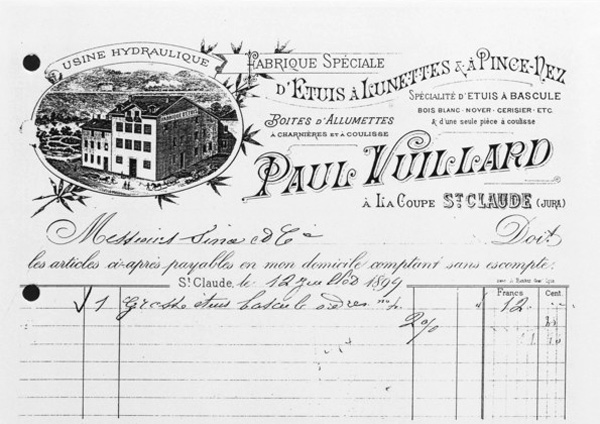 USINE HYDRAULIQUE
FABRIQUE SPÉCIALE
D'ETUIS À LUNETTES & À PINCE-NEZ
SPÉCIALITÉ D'ETUIS À BASCULE
BOIS BLANC - NOYER - CERISIER - ETC.
& d'une seule pièce à coulisse
BOITES D'ALLUMETTES
À CHARNIÈRES ET À COULISSE
PAUL VUILLARD
À LA COUPE ST CLAUDE (JURA)
Messieurs & Cie Doit
les articles ci-après payables en mon domicile comptant sans escompte:
St Claude, le 12 1899
Francs Cent.
1 Grosse étuis bascule 12
2%